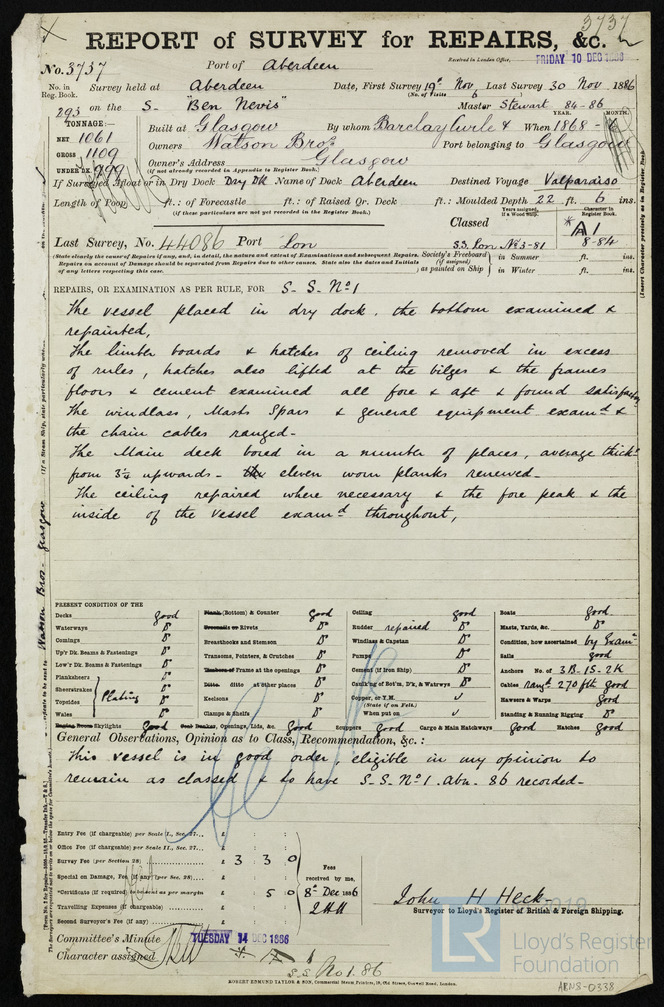 3737
REPORT of SURVEY for REPAIRS, &c.
No. 3737 Port of Aberdeen Received in London Office, FRIDAY 10 DEC 1886
No. in Reg. Book. Survey held at Aberdeen Date, First Survey 19th Nov, Last Survey 30 Nov 1886
(No. of Visits 6)
293 on the S. "Ben Nevis" Master Stewart 84-86
TONNAGE:— YEAR. MONTH.
NET 1061 Built at Glasgow By whom Barclay Curle & When 1868
GROSS 1109 Owners Watson Bros Port belonging to Glasgow
UNDER DK 999 Owner's Address Glasgow
(if not already recorded in Appendix to Register Book.)
If Surveyed Afloat or in Dry Dock Dry Dk Name of Dock Aberdeen Destined Voyage Valparaiso
Length of Poop ft.: of Forecastle ft.: of Raised Qr. Deck ft.: Moulded Depth 22 ft. 6 ins.
(if these particulars are not yet recorded in the Register Book.)
Classed Years assigned if a Wood Ship. Character in Register Book.
* A1
8-84
Last Survey, No. 44086 Port Lon S.S. Lon No 3-81
(State clearly the cause of Repairs if any, and, in detail, the nature and extent of Examinations and subsequent Repairs. Repairs on account of Damage should be separated from Repairs due to other causes. State also the dates and Initials of any letters respecting this case.
Society's Freeboard (if assigned) as painted on Ship in Summer ft. ins.
in Winter ft. ins.
REPAIRS, OR EXAMINATION AS PER RULE, FOR S. S. No 1
The vessel placed in dry dock, the bottom examined &
repainted,
The limber boards & hatches of ceiling removed in excess
of rules, hatches also lifted at the bilges & the frames
floors & cement examined all fore & aft & found satisfactory
The windlass, Masts Spars & general equipment examd &
the chain cables ranged.
The Main deck bored in a number of places, average thickss
from 3½ upwards. eleven worn planks renewed.
The ceiling repaired where necessary & the fore peak & the
inside of the vessel examd throughout,
PRESENT CONDITION OF THE
Decks good
Waterways Do
Comings Do
Up'r Dk. Beams & Fastenings Do
Low'r Dk. Beams & Fastenings Do
Planksheers
Sheerstrakes
Topsides
Wales
Plating Do
Engine Room Skylights Good
Plank (Bottom) & Counter good
Treenails or Rivets Do
Breasthooks and Stemson Do
Transoms, Pointers, & Crutches Do
Timbers or Frame at the openings Do
Ditto. ditto at other places Do
Keelsons Do
Clamps & Shelfs Do
Coal Bunker, Openings, Lids, &c. Good
Scuppers Good
Ceiling good
Rudder repaired Do
Windlass & Capstan Do
Pumps Do
Cement (if Iron Ship) Do
Caulk'ng of Bot'm, D'k, & Watrwys Do
Copper, or Y.M.
(State if on Felt.)
When put on
Cargo & Main Hatchways Good
Boats Good
Masts, Yards, &c. Do
Condition, how ascertained by Examn
Sails good
Anchors No. of 3B. 1S. 2K
Cables rangd 270 fth good
Hawsers & Warps Good
Standing & Running Rigging Do
Hatches Good
General Observations, Opinion as to Class, Recommendation, &c.:
This vessel is in good order, eligible in my opinion to
remain as classed & to have S.S. No 1. Abn. 86 recorded.
Entry Fee (if chargeable) per Scale I., Sec. 27... £ : :
Office Fee (if chargeable) per Scale II., Sec. 27... £ : :
Survey Fee (per Section 28) £ 3 3 0
Special on Damage, Fee (if any) (per Sec. 28) £ : :
*Certificate (if required) to be sent as per margin £ 5 0
Travelling Expenses (if chargeable) £ : :
Second Surveyor's Fee (if any) £ : :
Fees received by me,
8th Dec 1886
John H Heck
Surveyor to Lloyd's Register of British & Foreign Shipping.
Committee's Minute TUESDAY 14 DEC 1886
Character assigned
S.S. No 1. 86
ROBERT EDMUND TAYLOR & SON, Commercial Steam Printers, 19, Old Street, Goswell Road, London.
Watson Bros. Glasgow
(Insert Character precisely as in Register Book.)
LR Lloyd's Register
Foundation
ABN8-0338